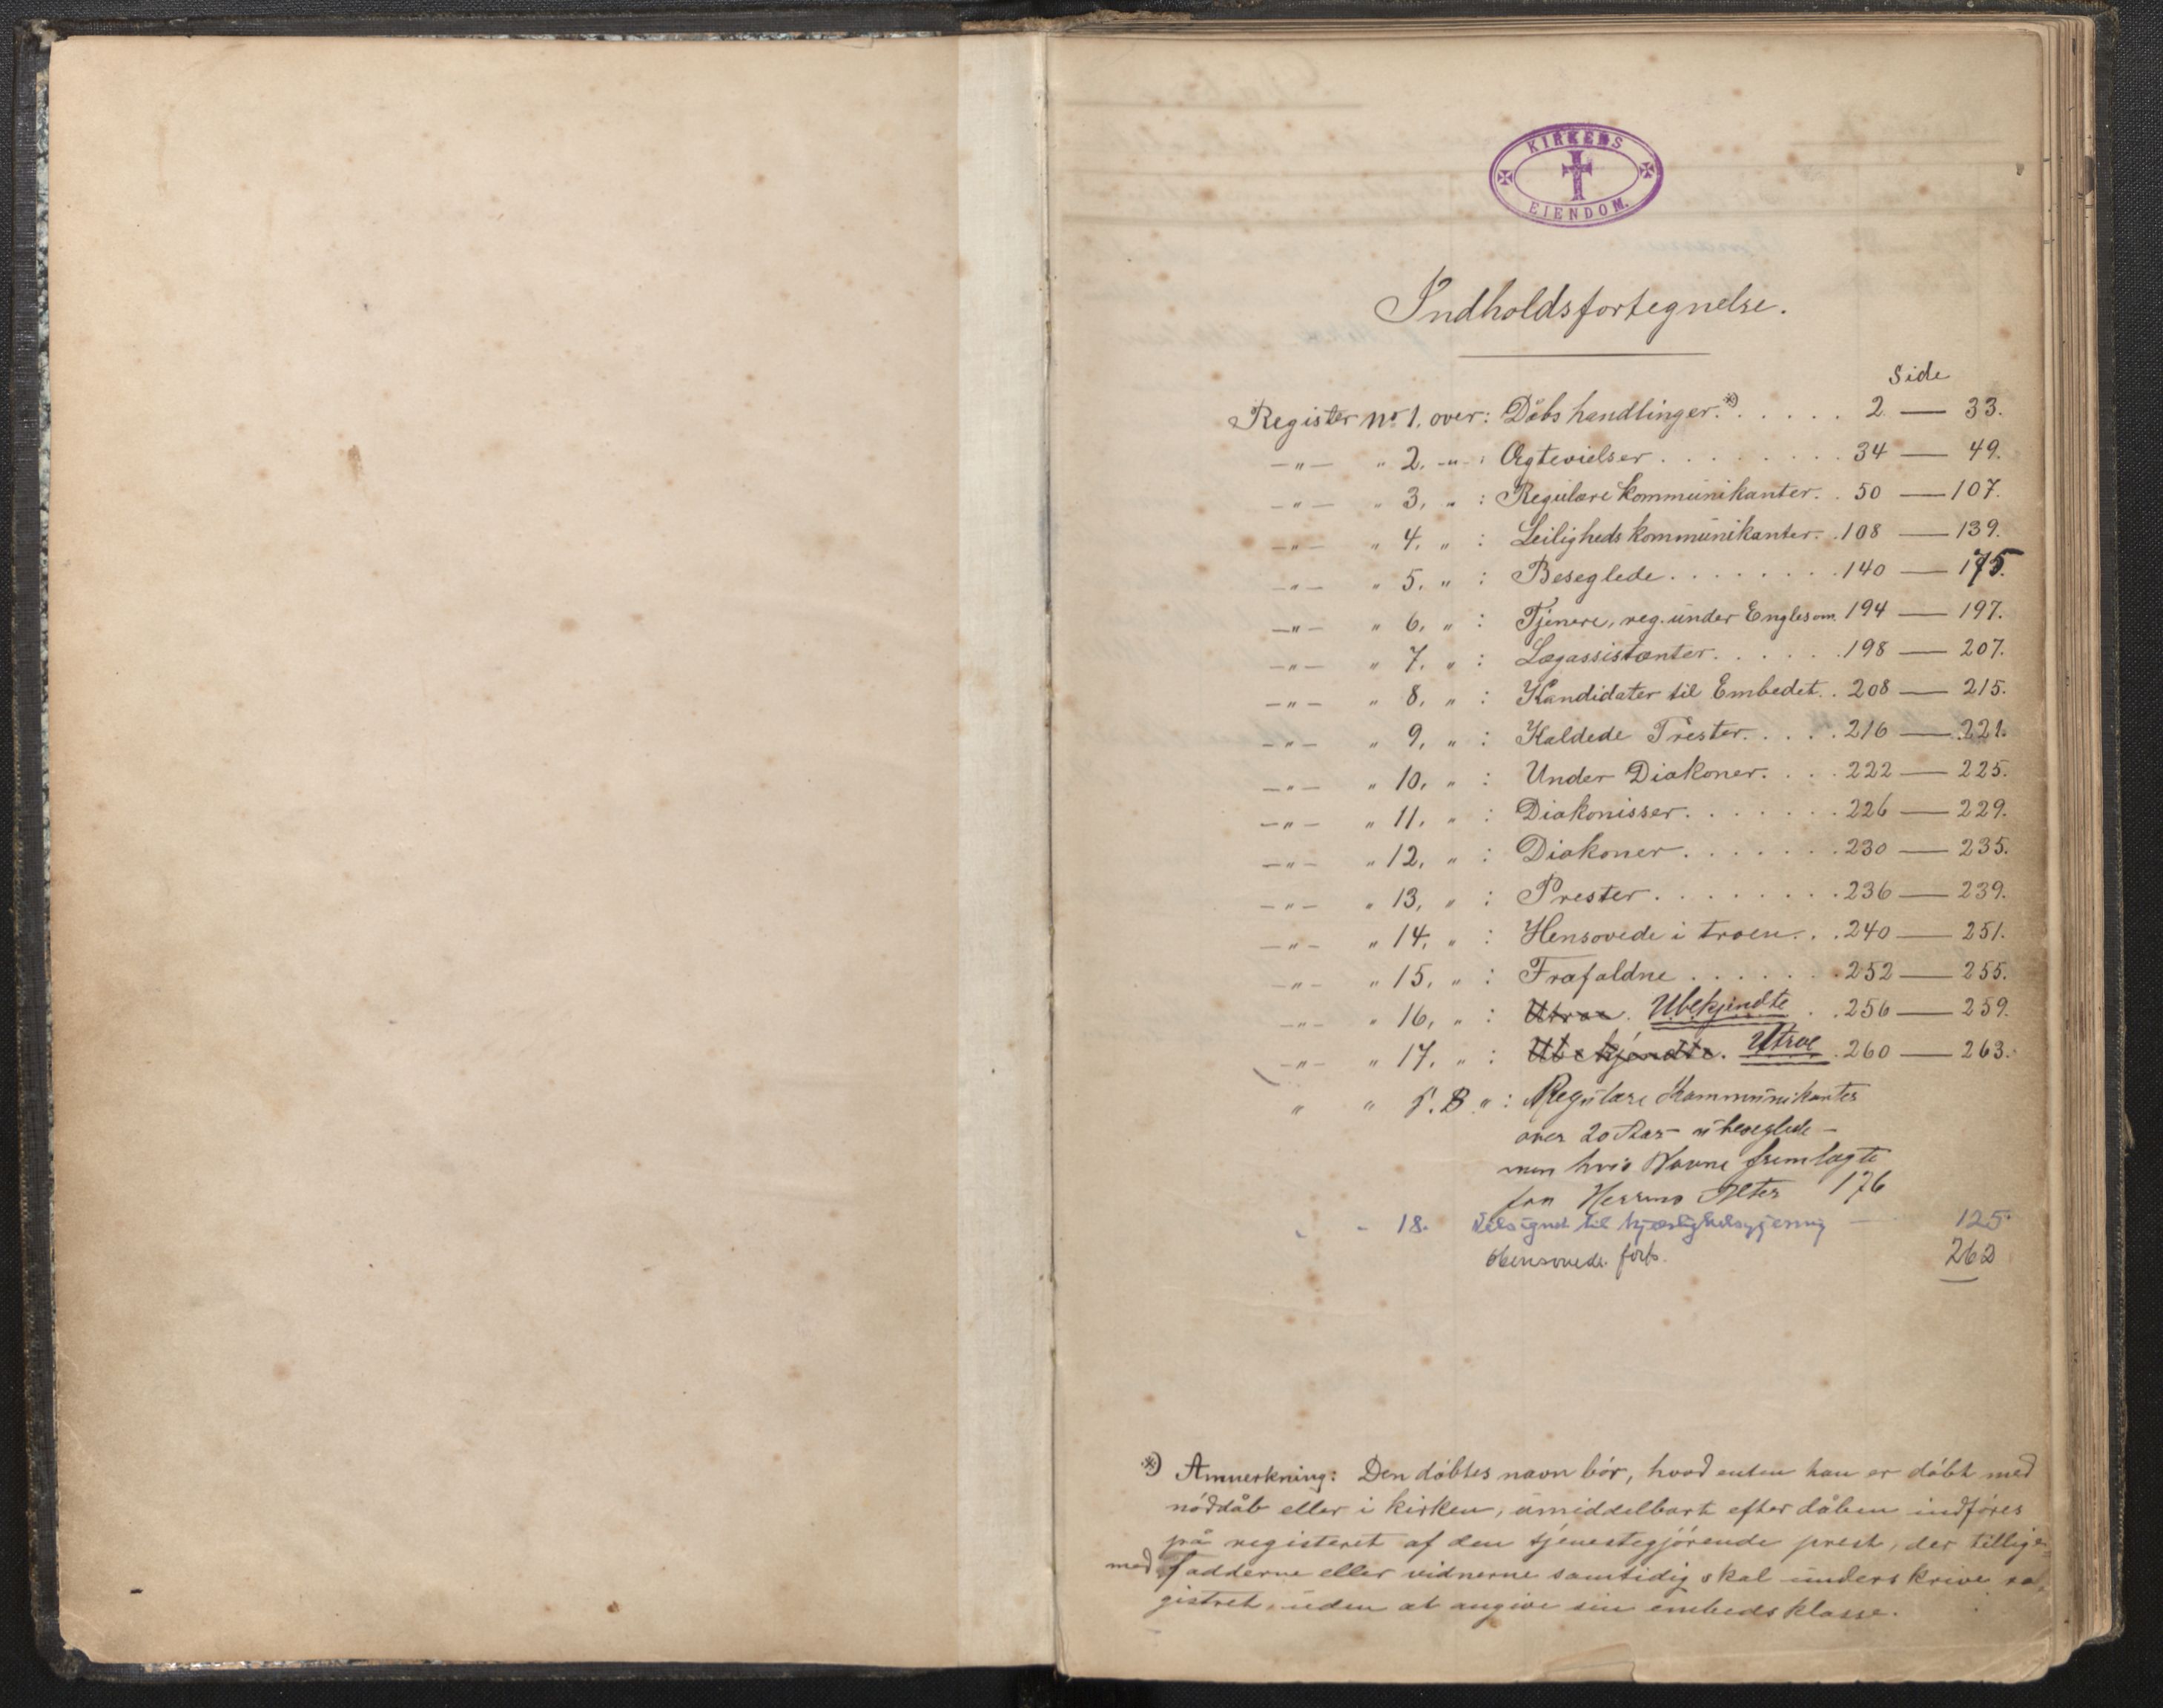 KIRKENS
EIENDOM.
Indholdsfortegnelse.
Side
Register No 1. over: Dåbshandlinger.*) . . . . . 2 — 33.
—"— " 2. —"— : Ægtevielser . . . . . . . . 34 — 49.
—"— " 3. " : Regulære kommunikanter. . 50 — 107.
—"— " 4. " : Leilighedskommunikanter. . 108 — 139.
—"— " 5. " : Beseglede . . . . . . . . 140 — 175.
—"— " 6. " : Tjenere, reg. under Englesom. 194 — 197.
—"— " 7. " : Lægassistenter . . . . . . 198 — 207.
—"— " 8. " : Kandidater til Embedet. . 208 — 215.
—"— " 9. " : Kaldede Prester. . . . . 216 — 221.
—"— " 10. " : Under Diakoner. . . . 222 — 225.
—"— " 11. " : Diakonisser. . . . . . . 226 — 229.
—"— " 12. " : Diakoner . . . . . . . 230 — 235.
—"— " 13. " : Prester . . . . . . . . . 236 — 239.
—"— " 14. " : Hensovede i troen. . . 240 — 251.
—"— " 15. " : Frafaldne . . . . . . . 252 — 255.
—"— " 16. " : Utroe. Ubekjendte . . 256 — 259.
—"— " 17. " : Ubekjendte. Utroe 260 — 263.
" " 5.B " : Regulære Kommunikanter
over 20 Aar – ubeseglede –
men hvis Navne fremlagte
for Herrens Alter 176
" - 18. Velsignet til kjærlighedsgjerning — 125.
Hensovede forts. 262
*) Anmerkning: Den døbtes navn bør, hvad enten han er døbt med
nøddåb eller i kirken, umiddelbart efter dåben indføres
på registeret af den tjenestegjørende prest, der tillige
med fadderne eller vidnerne samtidig skal underskrive re-
gistret, uden at angive sin embedsklasse.